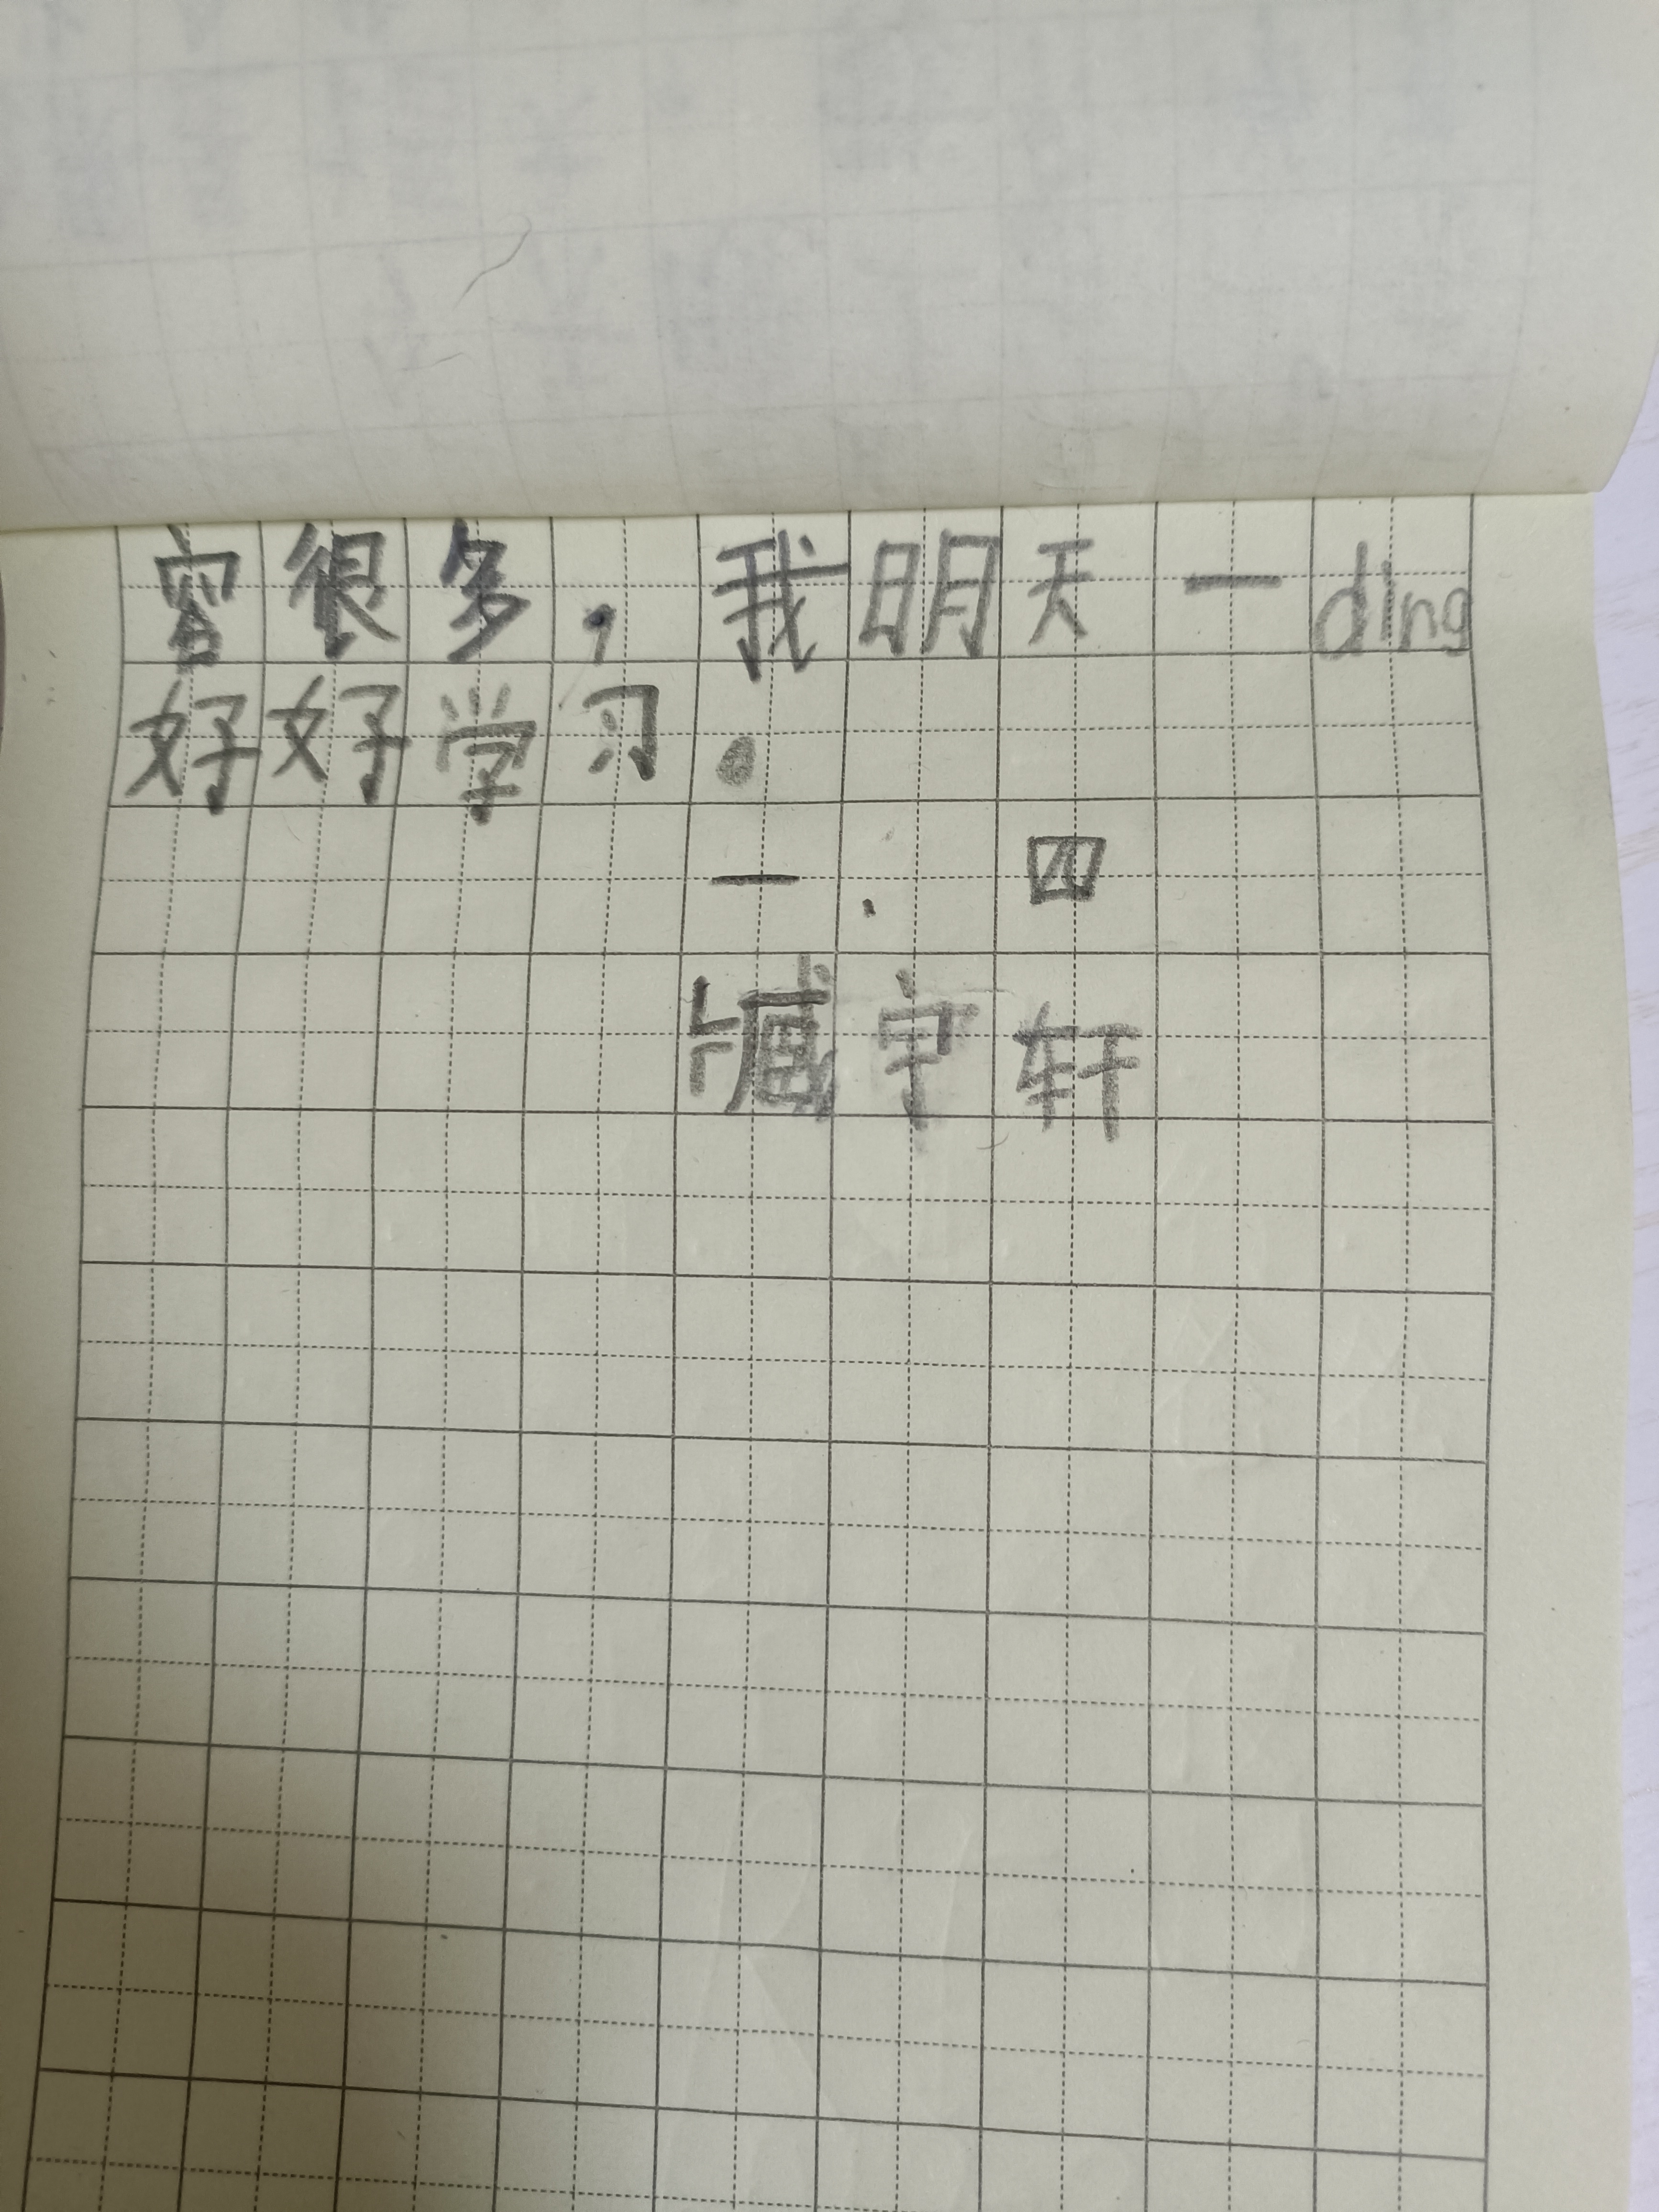 容很多，我明天一ding
好好学习。
一. 四
臧宇轩